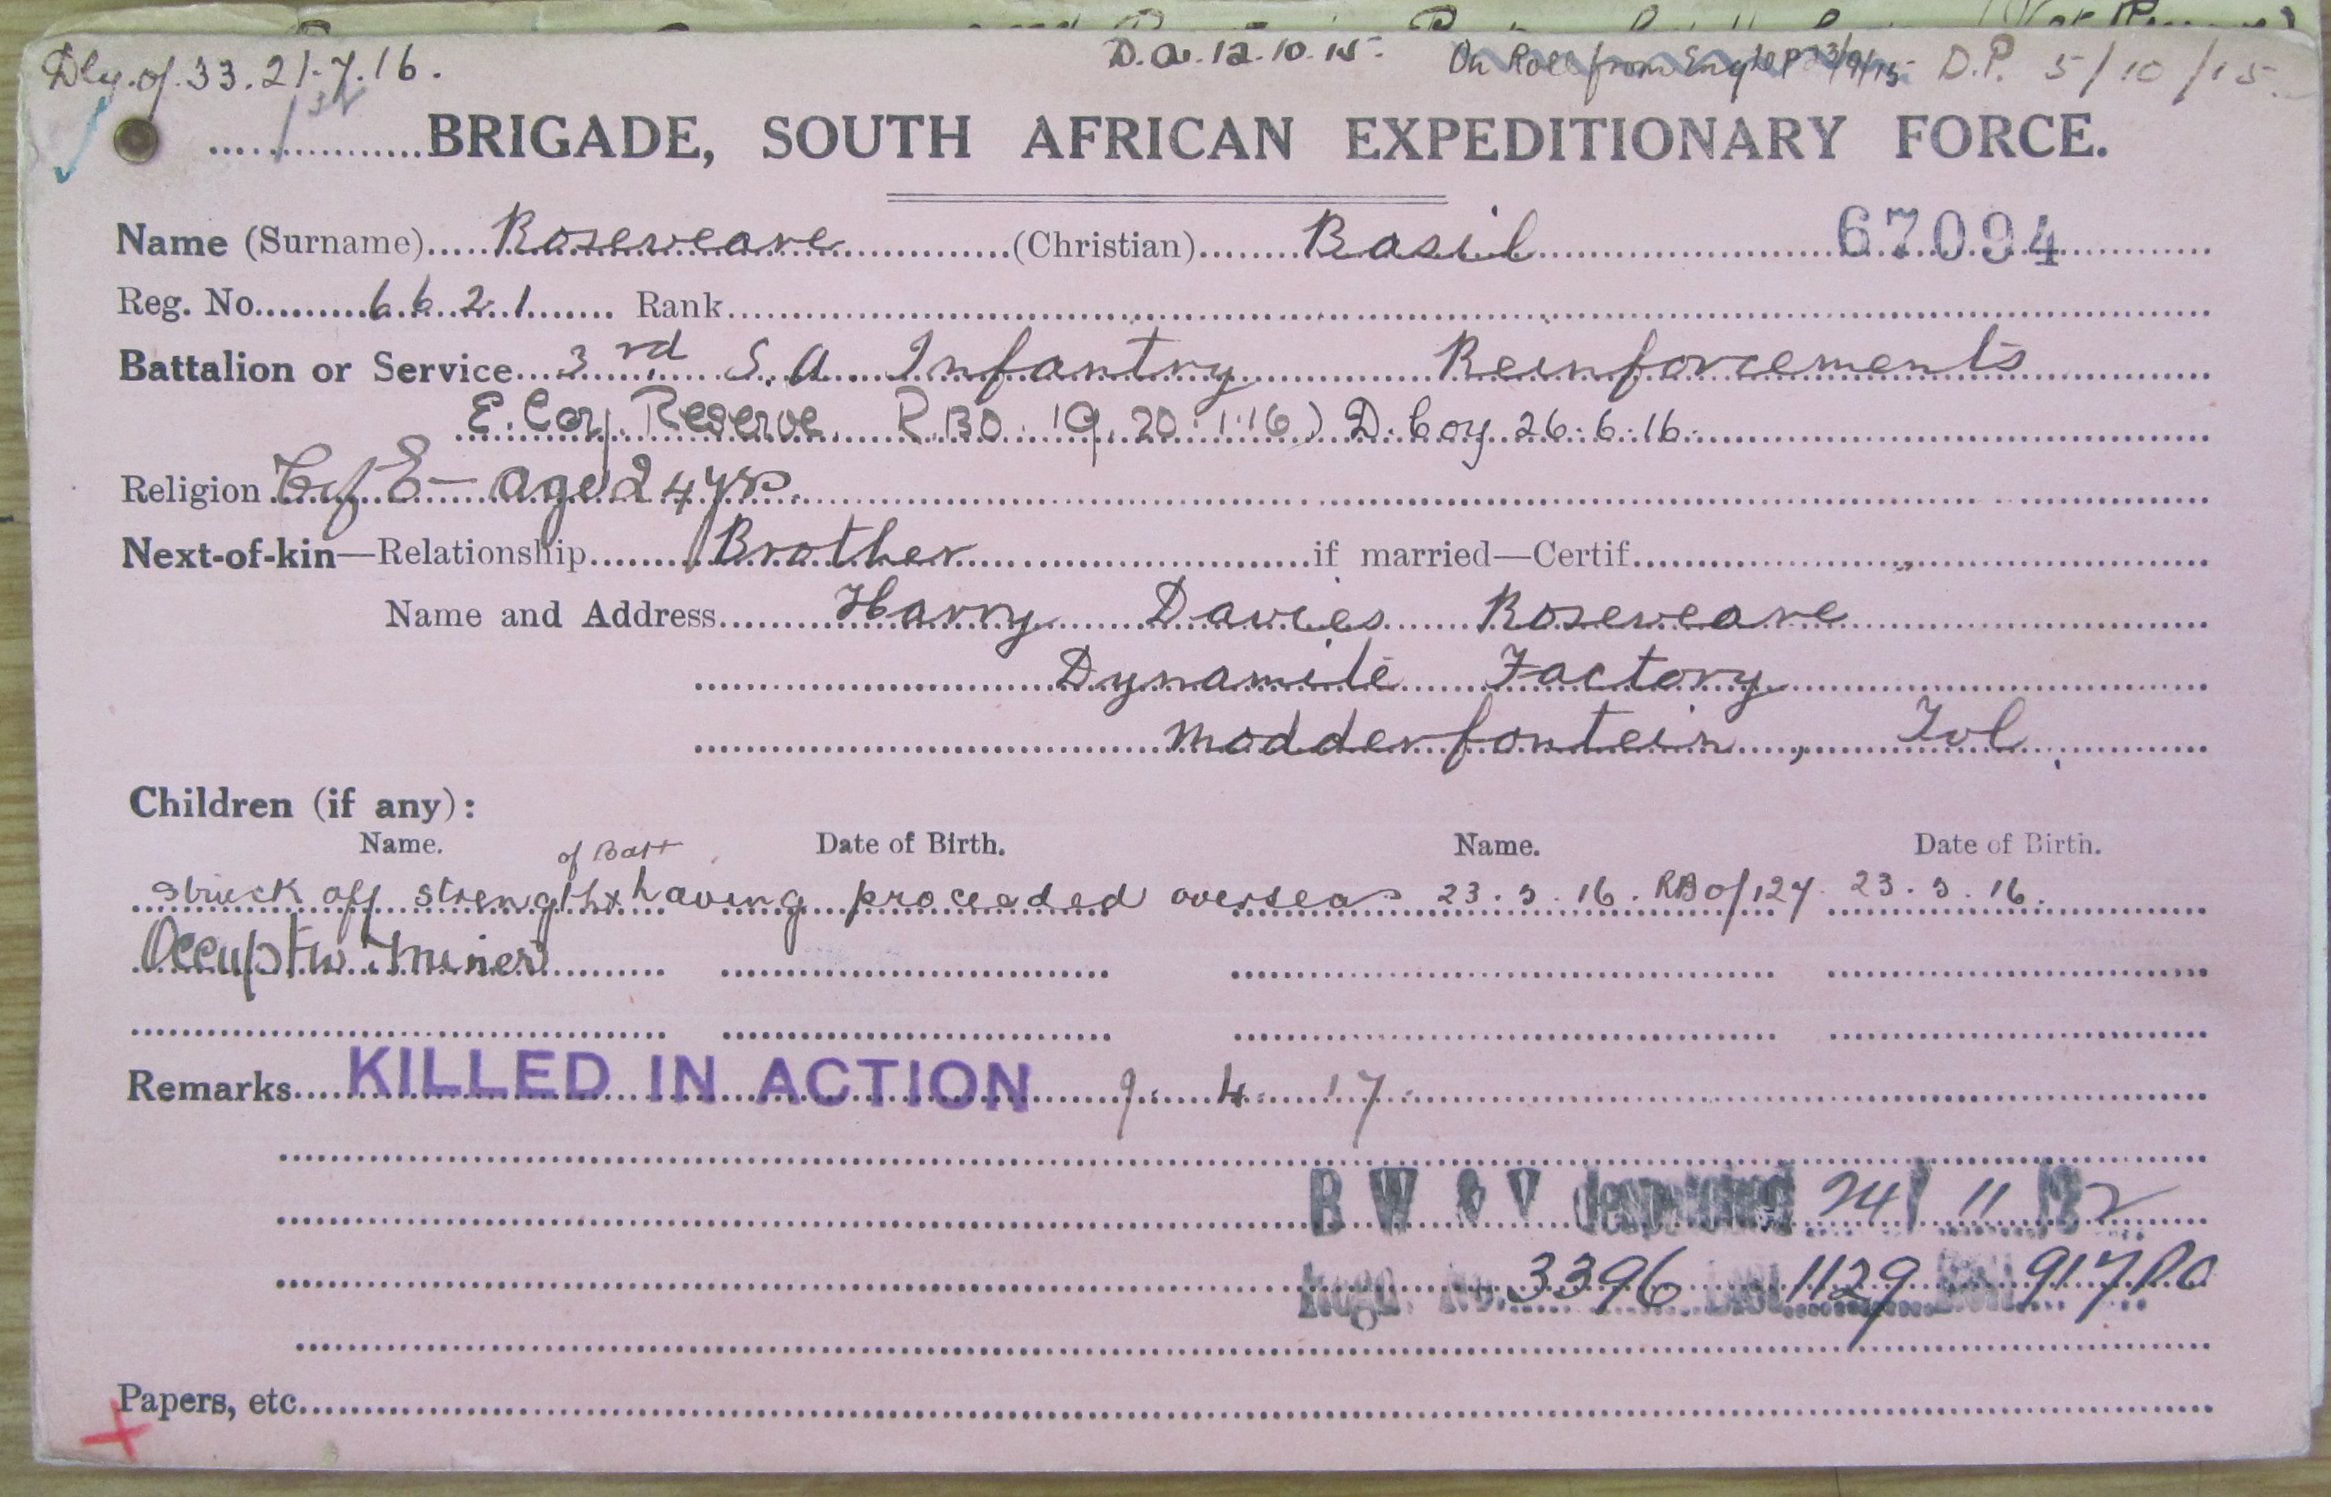 Dly. of. 33. 21.7.16. D.a. 12.10.15. On Roll from D.P. 5/10/15.
BRIGADE, SOUTH AFRICAN EXPEDITIONARY FORCE.
Name (Surname) Roseweare (Christian) Basil 67094
Reg. No. 6621 Rank
Battalion or Service 3rd S.A Infantry Reinforcements
E. Coy. Reserve R.BO. 19. 20.1.16) D. Coy 26.6.16.
Religion C of E — aged 24 yrs.
Next-of-kin—Relationship Brother if married—Certif.
Name and Address Harry Davies Roseweare
Dynamite Factory
Modderfontein, Tvl.
Children (if any):
Name. Date of Birth. Name. Date of Birth.
of Batt
struck off strength x having proceeded overseas 23.3.16. RBO/127. 23.3.16.
Occuptn Miner
Remarks KILLED IN ACTION 9. 4. 17.
B W & V despatched 24/11/32
Regn. No. 3396 List 1129 917 PO
Papers, etc.